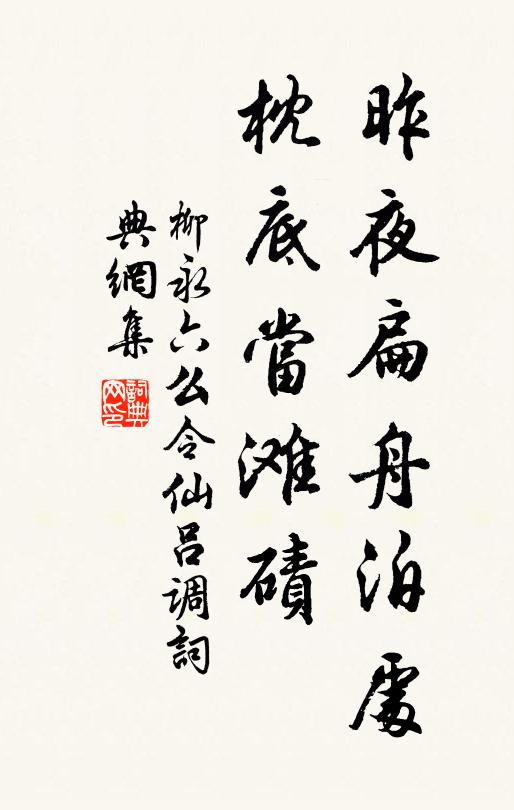 昨夜扁舟泊處
枕底當滩磧
柳永六么令仙吕调詞
典網集
詞典网印